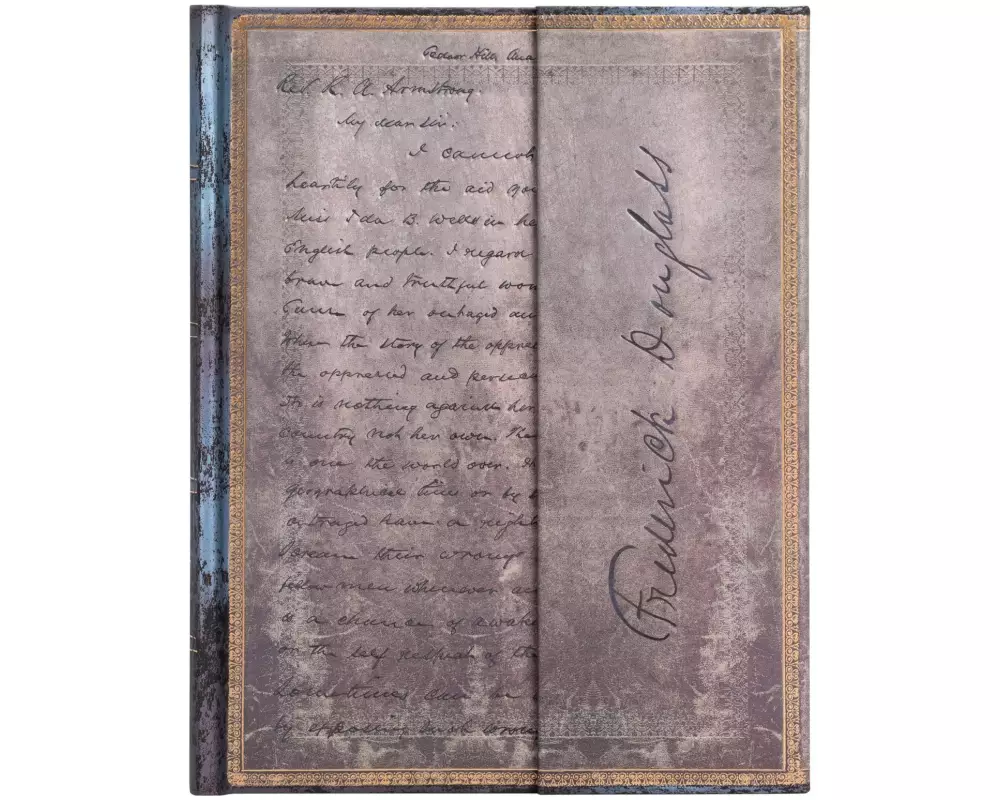 Cedar Hill, Ana
Rev. R. A. Armstrong.
My dear Sir:
I cannot
heartily for the aid
Miss Ida B. Wells in he
English people. I regard
brave and truthful wo
Cause of her outraged an
When the story of the oppres
the oppressed and persec
It is nothing against her
country not her own. The
is one the world over.
geographical lines or by
outraged have a right
scream their wrongs
fellow men wherever
is a chance of awake
on the self respect of the
Sometimes
by exposing such wrong
Frederick Douglass